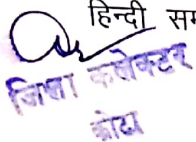 हिन्दी सम
जिला कलेक्टर
कोटा